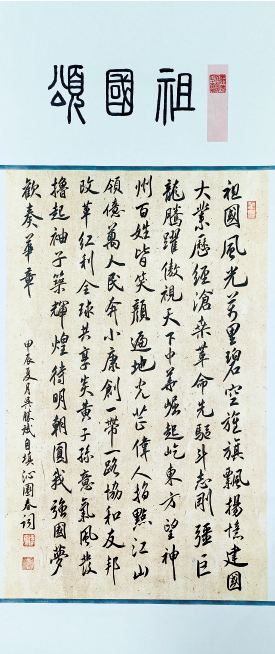 祖國頌
祖國風光萬里碧空旌旗飄揚憶建國
大業歷經滄桑革命先驅斗志剛彊巨
龍騰躍傲視天下中華崛起屹東方望神
州百姓皆笑顏遍地光芒偉人指點江山
領億萬人民奔小康創一帶一路協和友邦
改革紅利全球共享炎黃子孫意氣風發
擼起袖子築輝煌待明朝圓我強國夢
歡奏華章
甲辰夏月自填沁園春詞